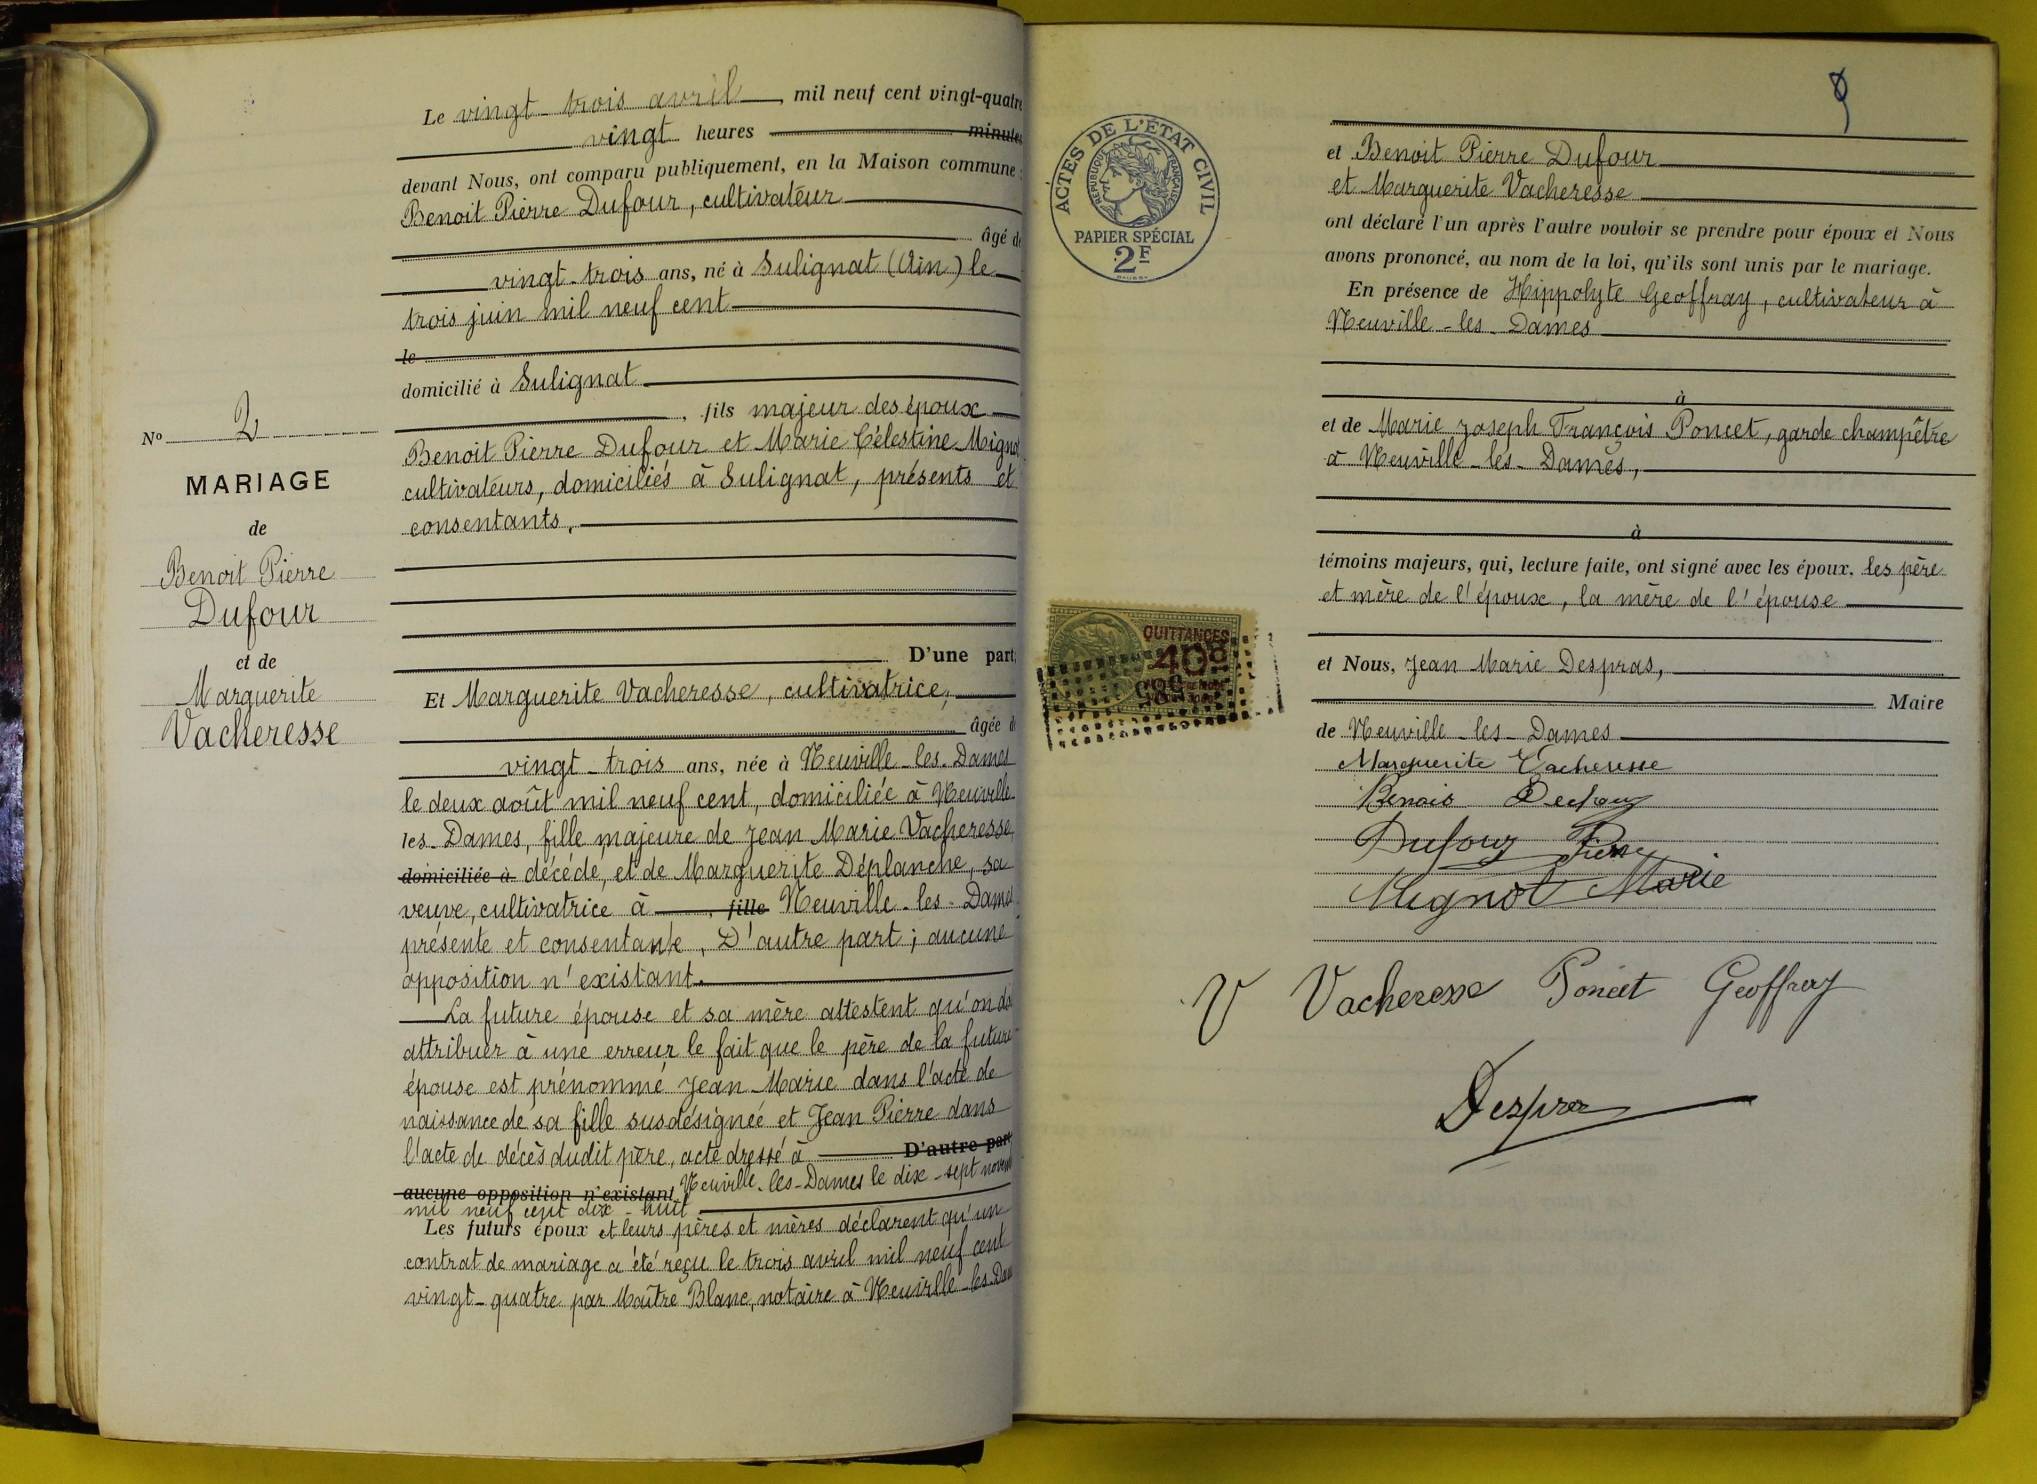 Le vingt trois avril, mil neuf cent vingt-quatre
vingt heures minutes
devant Nous, ont comparu publiquement, en la Maison commune :
Benoit Pierre Dufour, cultivateur
âgé de
vingt-trois ans, né à Sulignat (Ain) le
trois juin mil neuf cent
le
domicilié à Sulignat
, fils majeur des époux
Benoit Pierre Dufour et Marie Célestine Mignot
cultivateurs, domiciliés à Sulignat, présents et
consentants,
D'une part;
No 2
MARIAGE
de
Benoit Pierre
Dufour
et de
Marguerite
Vacheresse
Et Marguerite Vacheresse, cultivatrice,
âgée de
vingt-trois ans, née à Neuville-les-Dames
le deux août mil neuf cent, domiciliée à Neuville-
les-Dames, fille majeure de Jean Marie Vacheresse,
domiciliée à décédé, et de Marguerite Déplanche, sa
veuve, cultivatrice à , fille Neuville-les-Dames
présente et consentante, D'autre part; aucune
opposition n'existant.
La future épouse et sa mère attestent qu'on doit
attribuer à une erreur le fait que le père de la future
épouse est prénommé Jean Marie dans l'acte de
naissance de sa fille susdésignée et Jean Pierre dans
l'acte de décès dudit père, acte dressé à D'autre part
aucune opposition n'existant Neuville-les-Dames le dix-sept novembre
mil neuf cent dix-huit
Les futurs époux et leurs pères et mères déclarent qu'un
contrat de mariage a été reçu le trois avril mil neuf cent
vingt-quatre par Maître Blanc, notaire à Neuville-les-Dames
ACTES DE L'ÉTAT CIVIL
RÉPUBLIQUE FRANÇAISE
PAPIER SPÉCIAL
2F
QUITTANCES
40c
et Benoit Pierre Dufour
et Marguerite Vacheresse
ont déclaré l'un après l'autre vouloir se prendre pour époux et Nous
avons prononcé, au nom de la loi, qu'ils sont unis par le mariage.
En présence de Hippolyte Geoffray, cultivateur à
Neuville-les-Dames
à
et de Marie Joseph François Poncet, garde champêtre
à Neuville-les-Dames,
à
témoins majeurs, qui, lecture faite, ont signé avec les époux, les père
et mère de l'époux, la mère de l'épouse
et Nous, Jean Marie Despras,
Maire
de Neuville-les-Dames
Marguerite Vacheresse
Benois Dufour
Dufour Pierre
Mignot Marie
V Vacheresse Poncet Geoffray
Despras